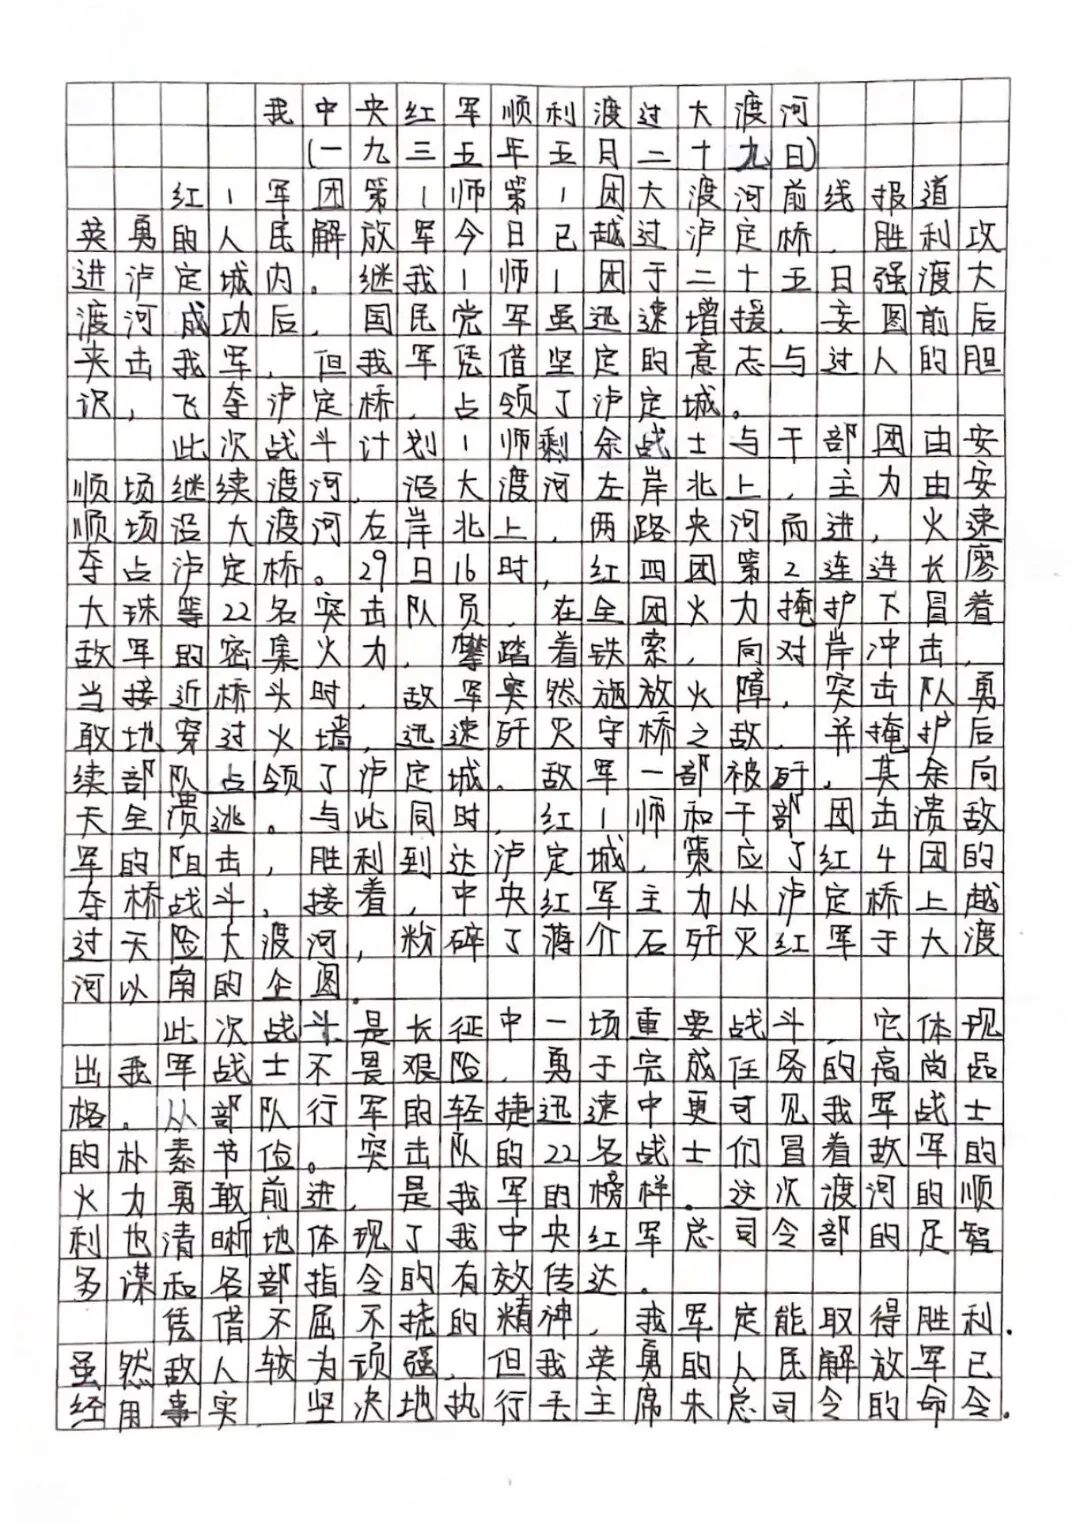 我中央红军顺利渡过大渡河
(一九三五年五月二十九日)
红1军团第1师第1团大渡河前线报道
英勇的人民解放军今日已越过泸定桥，胜利攻
进泸定城内。继我1师1团于二十五日强渡大
渡河成功后，国民党军虽迅速增援，妄图前后
夹击我军，但我军凭借坚定的意志与过人的胆
识，飞夺泸定桥，占领了泸定城。
此次战斗计划1师剩余战士与干部团由安
顺场继续渡河，沿大渡河左岸北上，主力由安
顺场沿大渡河右岸北上，两路央河而进，火速
夺占泸定桥。29日16时，红四团第2连连长廖
大珠等22名突击队员，在全团火力掩护下冒着
敌军的密集火力，攀踏着铁索，向对岸冲击，
当接近桥头时，敌军突然施放火障，突击队勇
敢地穿过火墙，迅速歼灭守桥之敌，并掩护后
续部队占领了泸定城。敌军一部被歼，其余向
天全溃逃。与此同时，红1师和干部团击溃敌
军的阻击，胜利到达泸定城，策应了红4团的
夺桥战斗。接着，中央红军主力从泸定桥上越
过天险大渡河，粉碎了蒋介石歼灭红军于大渡
河以南的企图。
此次战斗是长征中一场重要战斗，它体现
出我军战士不畏艰险，勇于完成任务的高尚品
格。从部队行军的轻捷迅速中更可见我军战士
的朴素节俭。突击队的22名战士们冒着敌军的
火力勇敢前进，是我军的榜样。这次渡河的顺
利也清晰地体现了我中央红军总司令部的足智
多谋和各部指令的有效传达。
凭借不屈不挠的精神，我军定能取得胜利。
虽然敌人较为顽强，但我英勇的人民解放军已
经用事实，坚决地执行毛主席朱总司令的命令。